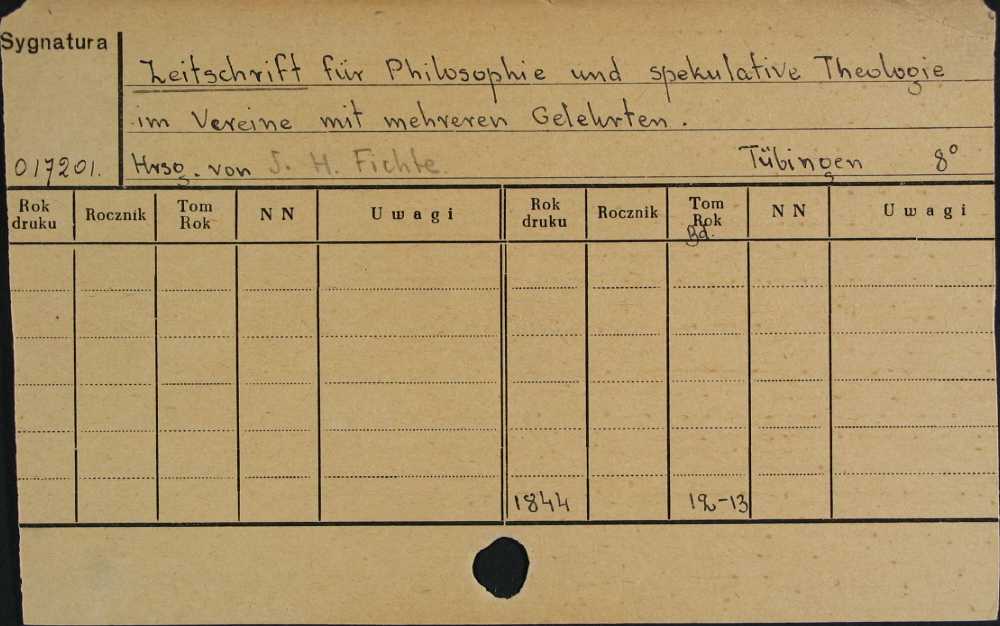 Sygnatura
Zeitschrift für Philosophie und spekulative Theologie
im Vereine mit mehreren Gelehrten.
017201. Hrsg. von J. H. Fichte. Tübingen 8°
Rok druku Rocznik Tom Rok NN Uwagi Rok druku Rocznik Tom Rok Bd. NN Uwagi
1844 12-13